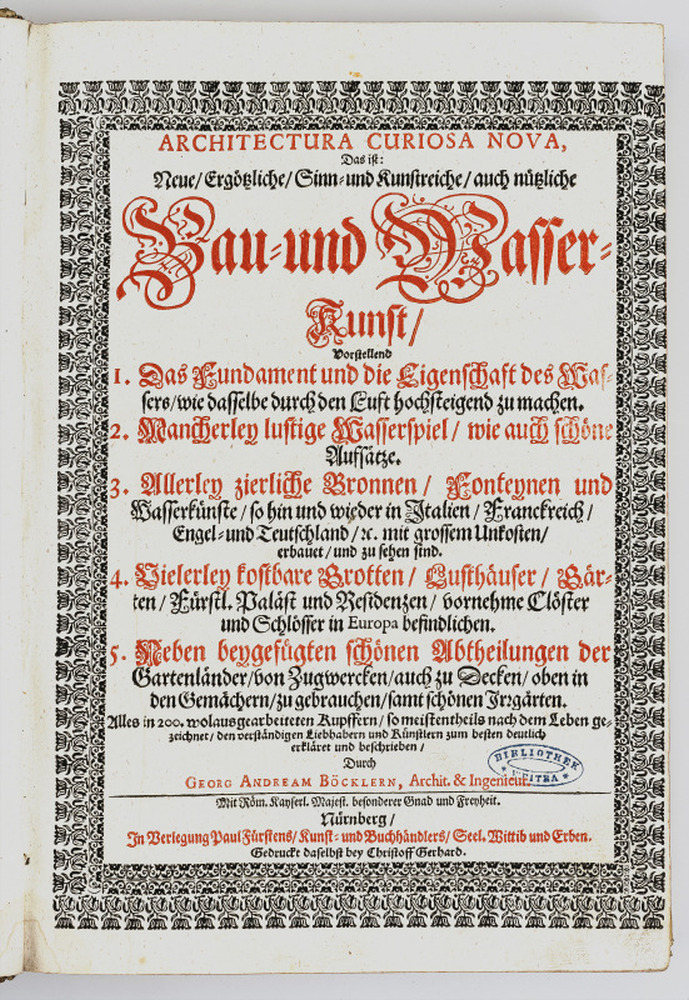 ARCHITECTURA CURIOSA NOVA,
Das ist:
Neue/ Ergötzliche/ Sinn-und Kunstreiche/ auch nützliche
Bau-und Wasser-
Kunst/
Vorstellend
1. Das Fundament und die Eigenschafft des Was-
sers/wie dasselbe durch den Lufft hochsteigend zu machen.
2. Mancherley lustige Wasserspiel/ wie auch schöne
Aufsätze.
3. Allerley zierliche Bronnen/ Fonteynen und
Wasserkünste/ so hin und wieder in Italien/ Franckreich/
Engel-und Teutschland/ ꝛc. mit grossem Unkosten/
erbauet/ und zu sehen sind.
4. Vielerley kostbare Grotten/ Lusthäuser/ Gär-
ten/ Fürstl. Paläst und Residenzen/ vornehme Clöster
und Schlösser in Europa befindlichen.
5. Neben beygefügten schönen Abtheilungen der
Gartenländer/von Zugwercken/auch zu Decken/ oben in
den Gemächern/zu gebrauchen/samt schönen Irꝛgärten.
Alles in 200. wolausgearbeiteten Kupffern/ so meistentheils nach dem Leben ge-
zeichnet/ den verständigen Liebhabern und Künstlern zum besten deutlich
erkläret und beschrieben/
Durch
GEORG ANDREAM BÖCKLERN, Archit. & Ingenieur.
BIBLIOTHEK
Mit Röm. Kayserl. Majest. besonderer Gnad und Freyheit.
Nürnberg/
In Verlegung Paul Fürstens/ Kunst-und Buchhändlers/ Seel. Wittib und Erben.
Gedruckt daselbst bey Christoff Gerhard.